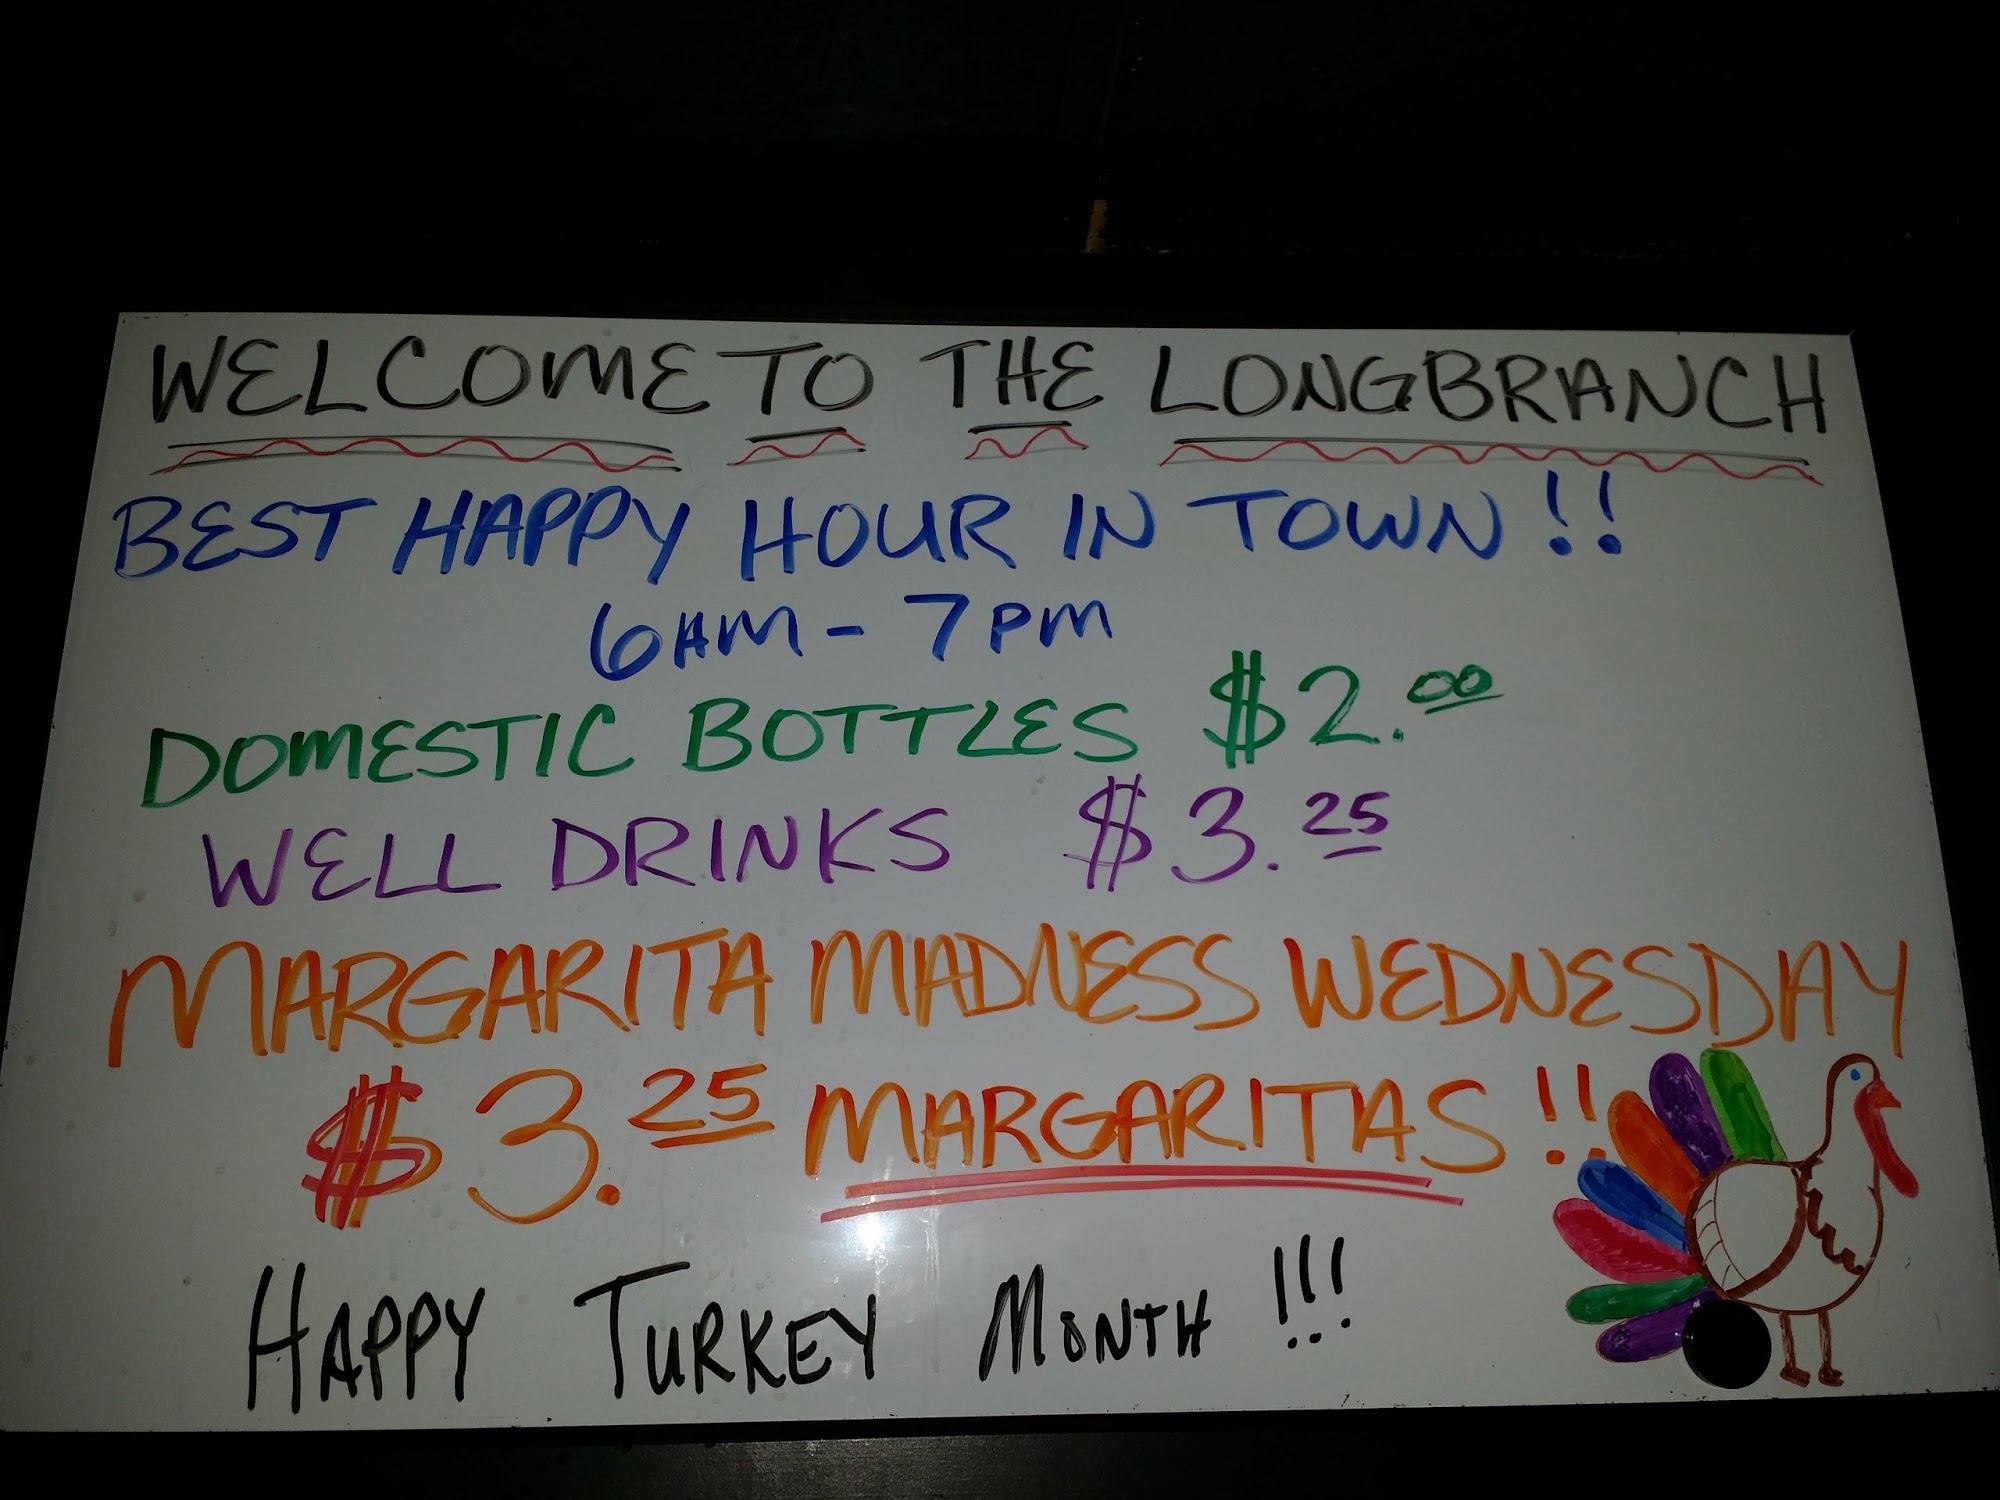 WELCOME TO THE LONGBRANCH
BEST HAPPY HOUR IN TOWN!!
6AM - 7PM
DOMESTIC BOTTLES $2.00
WELL DRINKS $3.25
MARGARITA MADNESS WEDNESDAY
$3.25 MARGARITAS!!
HAPPY TURKEY MONTH!!!